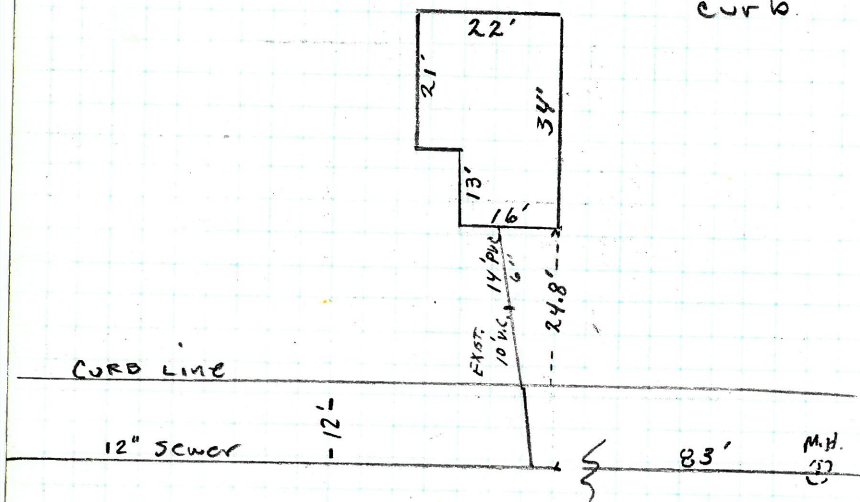 curb.
22'
21'
34"
13'
16'
14' PVC
6"
24.8'
EXIST.
10' V.C.
CURB Line
12'
12" Sewer
83'
M.H.